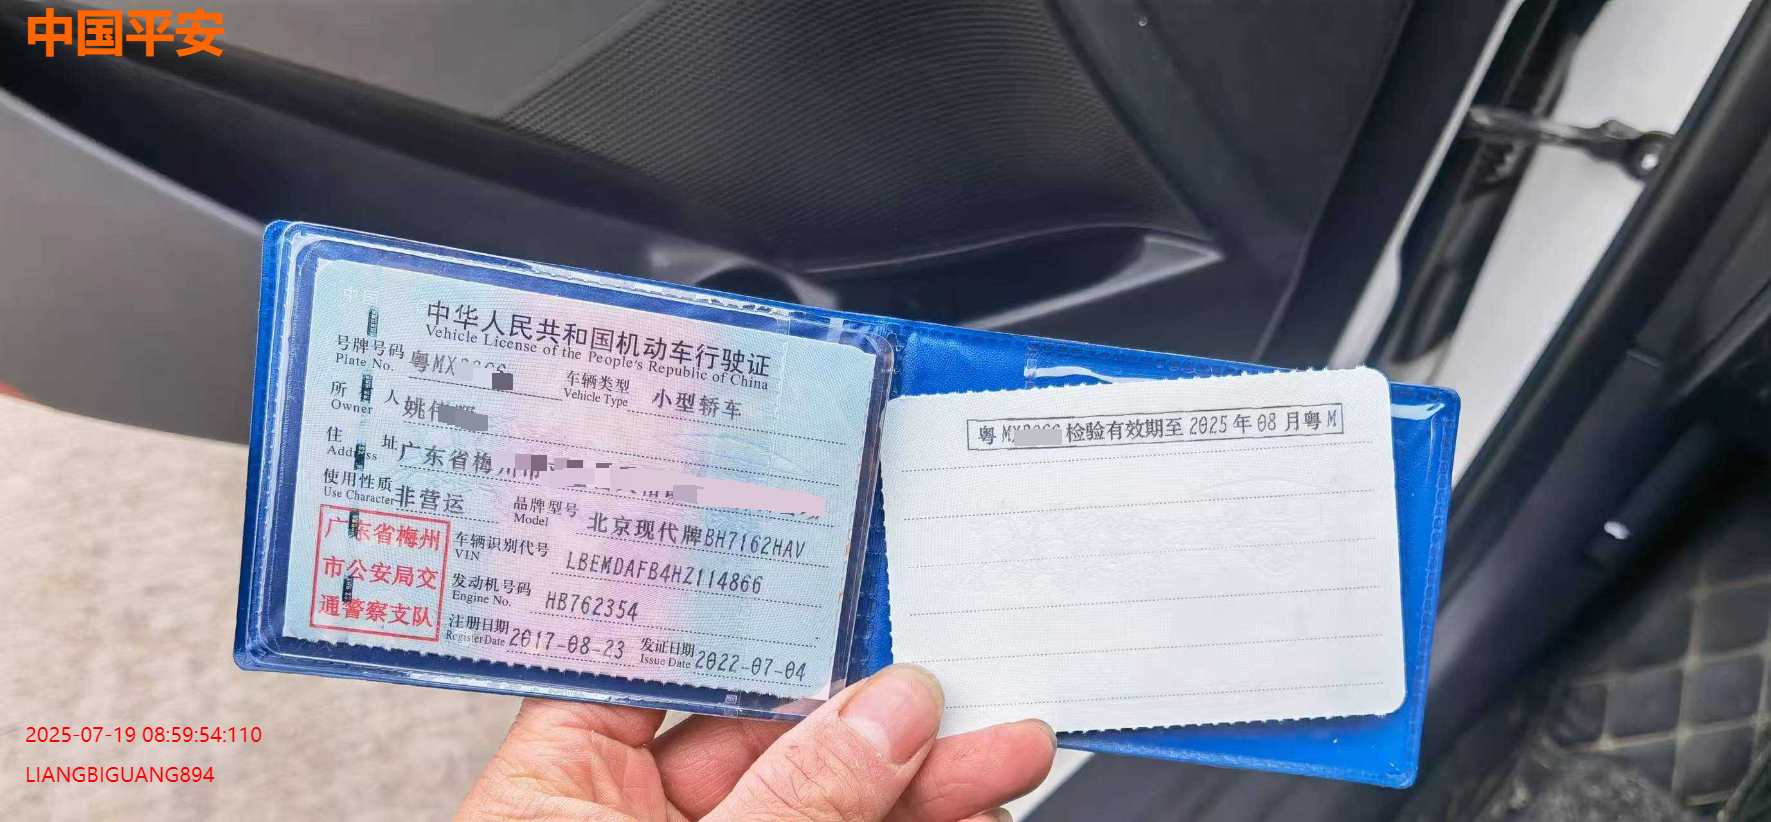 中国平安
中华人民共和国机动车行驶证
Vehicle License of the People's Republic of China
号牌号码 粤MX 车辆类型 小型轿车
Plate No. Vehicle Type
所 人 姚
Owner
住 址 广东省梅
Address
使用性质 非营运 品牌型号 北京现代牌BH7162HAV
Use Character Model
广东省梅州
市公安局交
通警察支队
车辆识别代号 LBEMDAFB4HZ114866
VIN
发动机号码 HB762354
Engine No.
注册日期 2017-08-23 发证日期 2022-07-04
Register Date Issue Date
粤M 检验有效期至2025年08月粤M
2025-07-19 08:59:54:110
LIANGBIGUANG894